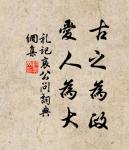 古之為政
愛人為大
礼記哀公問詞典
網集